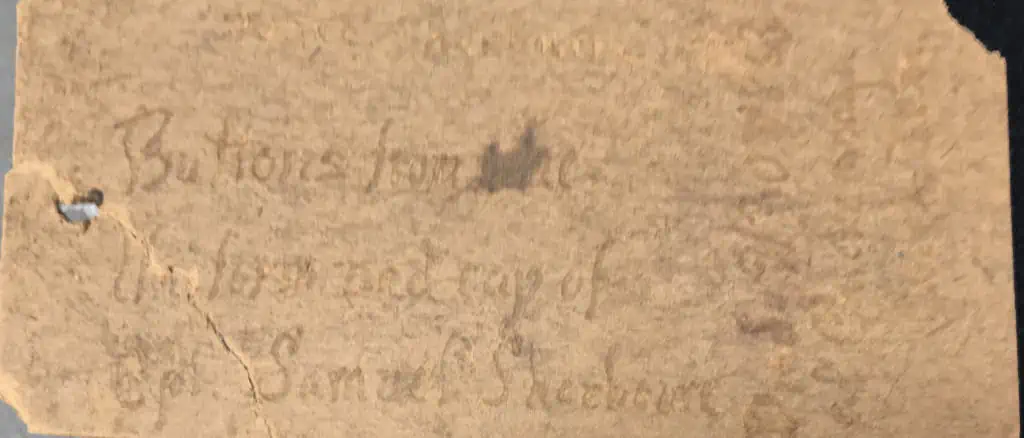 Buttons from the
Uniform and cap of
Cpt. Samuel